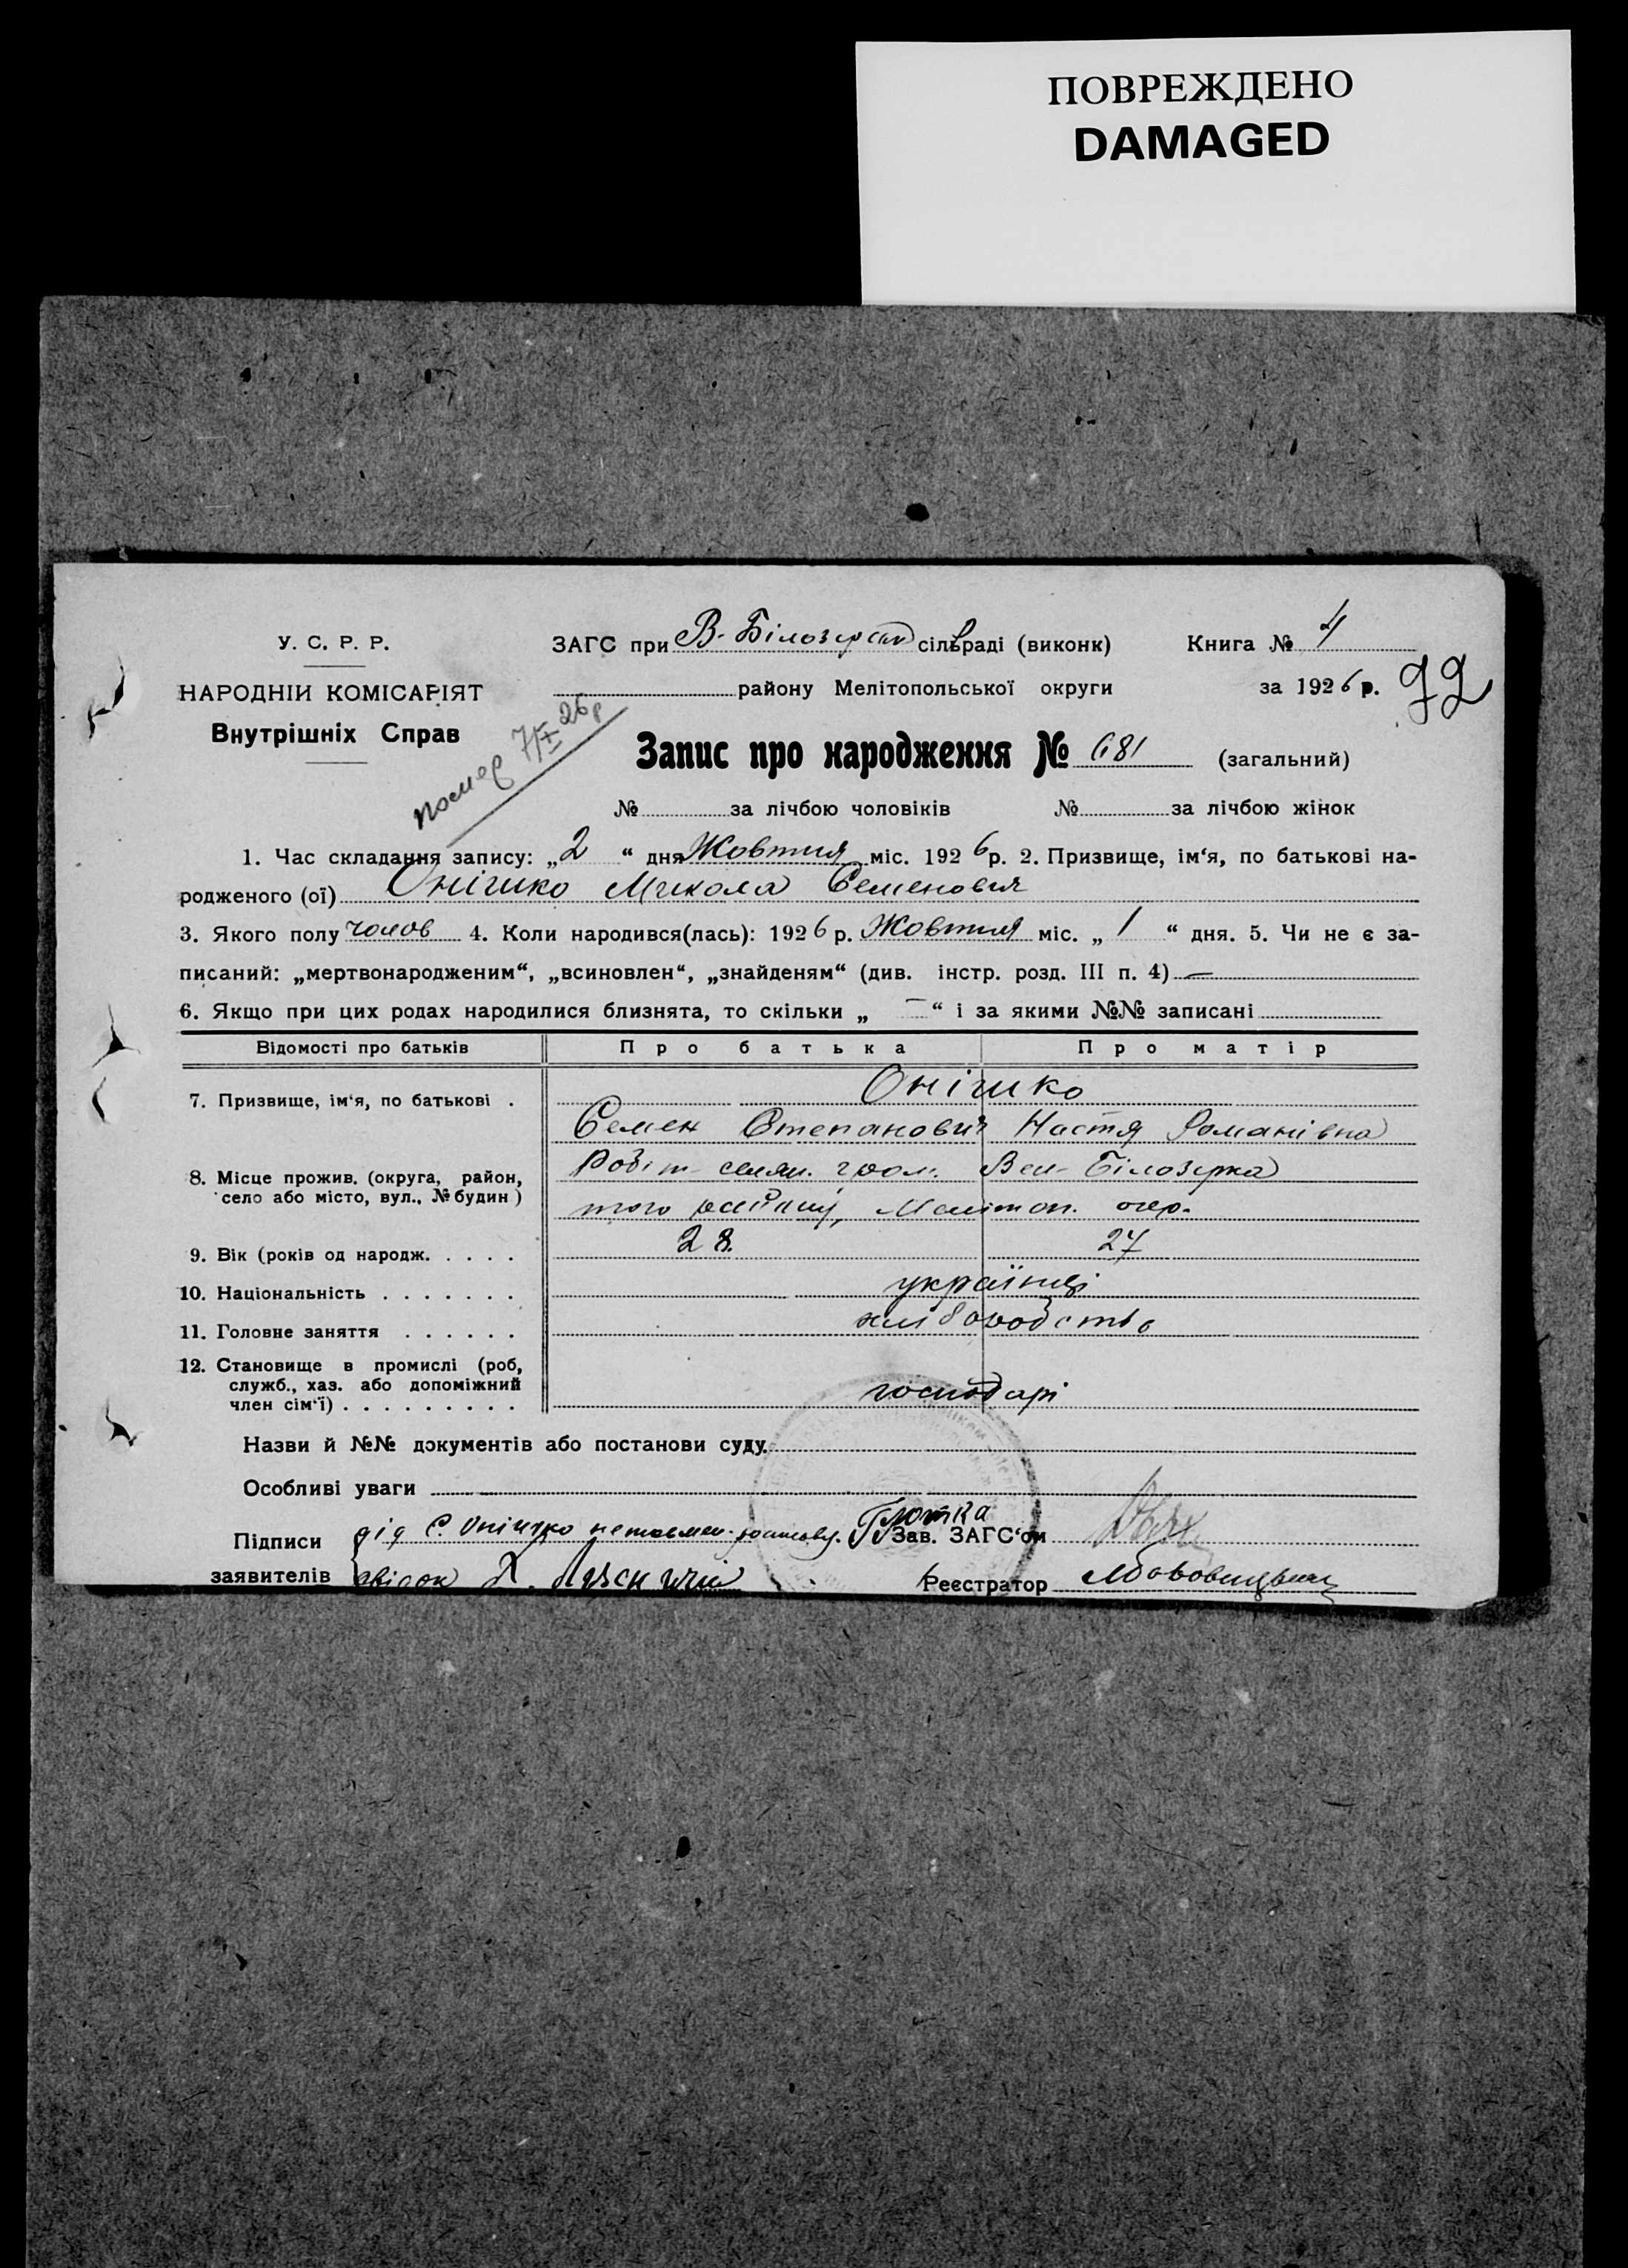 ПОВРЕЖДЕНО
DAMAGED
У. С. Р. Р.
ЗАГС при В-Білозерськ сільраді (виконк)
Книга № 4
НАРОДНІИ КОМІСАРІЯТ
району Мелітопольської округи
за 1926 р. 92
Внутрішніх Справ
помер 7/X 26р
Запис про народження № 681 (загальний)
№ за лічбою чоловіків № за лічбою жінок
1. Час складання запису: „2“ дня Жовтня міс. 1926 р. 2. Призвище, ім‘я, по батькові на-
родженого (ої) Онішко Микола Семенович
3. Якого полу чолов 4. Коли народився(лась): 1926 р. Жовтня міс. „1“ дня. 5. Чи не є за-
писаний: „мертвонародженим“, „всиновлен“, „знайденям“ (див. інстр. розд. III п. 4) —
6. Якщо при цих родах народилися близнята, то скільки „—“ і за якими №№ записані
Відомості про батьків Про батька Про матір
7. Призвище, ім‘я, по батькові . Онішко
Семен Степанович Настя Романівна
8. Місце прожив. (округа, район, село або місто, вул., № будин ) Робіт-селян. гром. Вел-Білозерка
того району, Меліт оп. окр.
9. Вік (років од народж. . . . . 28. 27
10. Національність . . . . . . . українці
11. Головне заняття . . . . . . хліборобство
12. Становище в промислі (роб, служб., хаз. або допоміжний член сім‘ї) . . . . . . . . . господарі
Назви й №№ документів або постанови суду.
Особливі уваги
Підписи дід С. Онішко неписьмен. Глотка Зав. ЗАГС‘ом
заявителів свідок Реєстратор